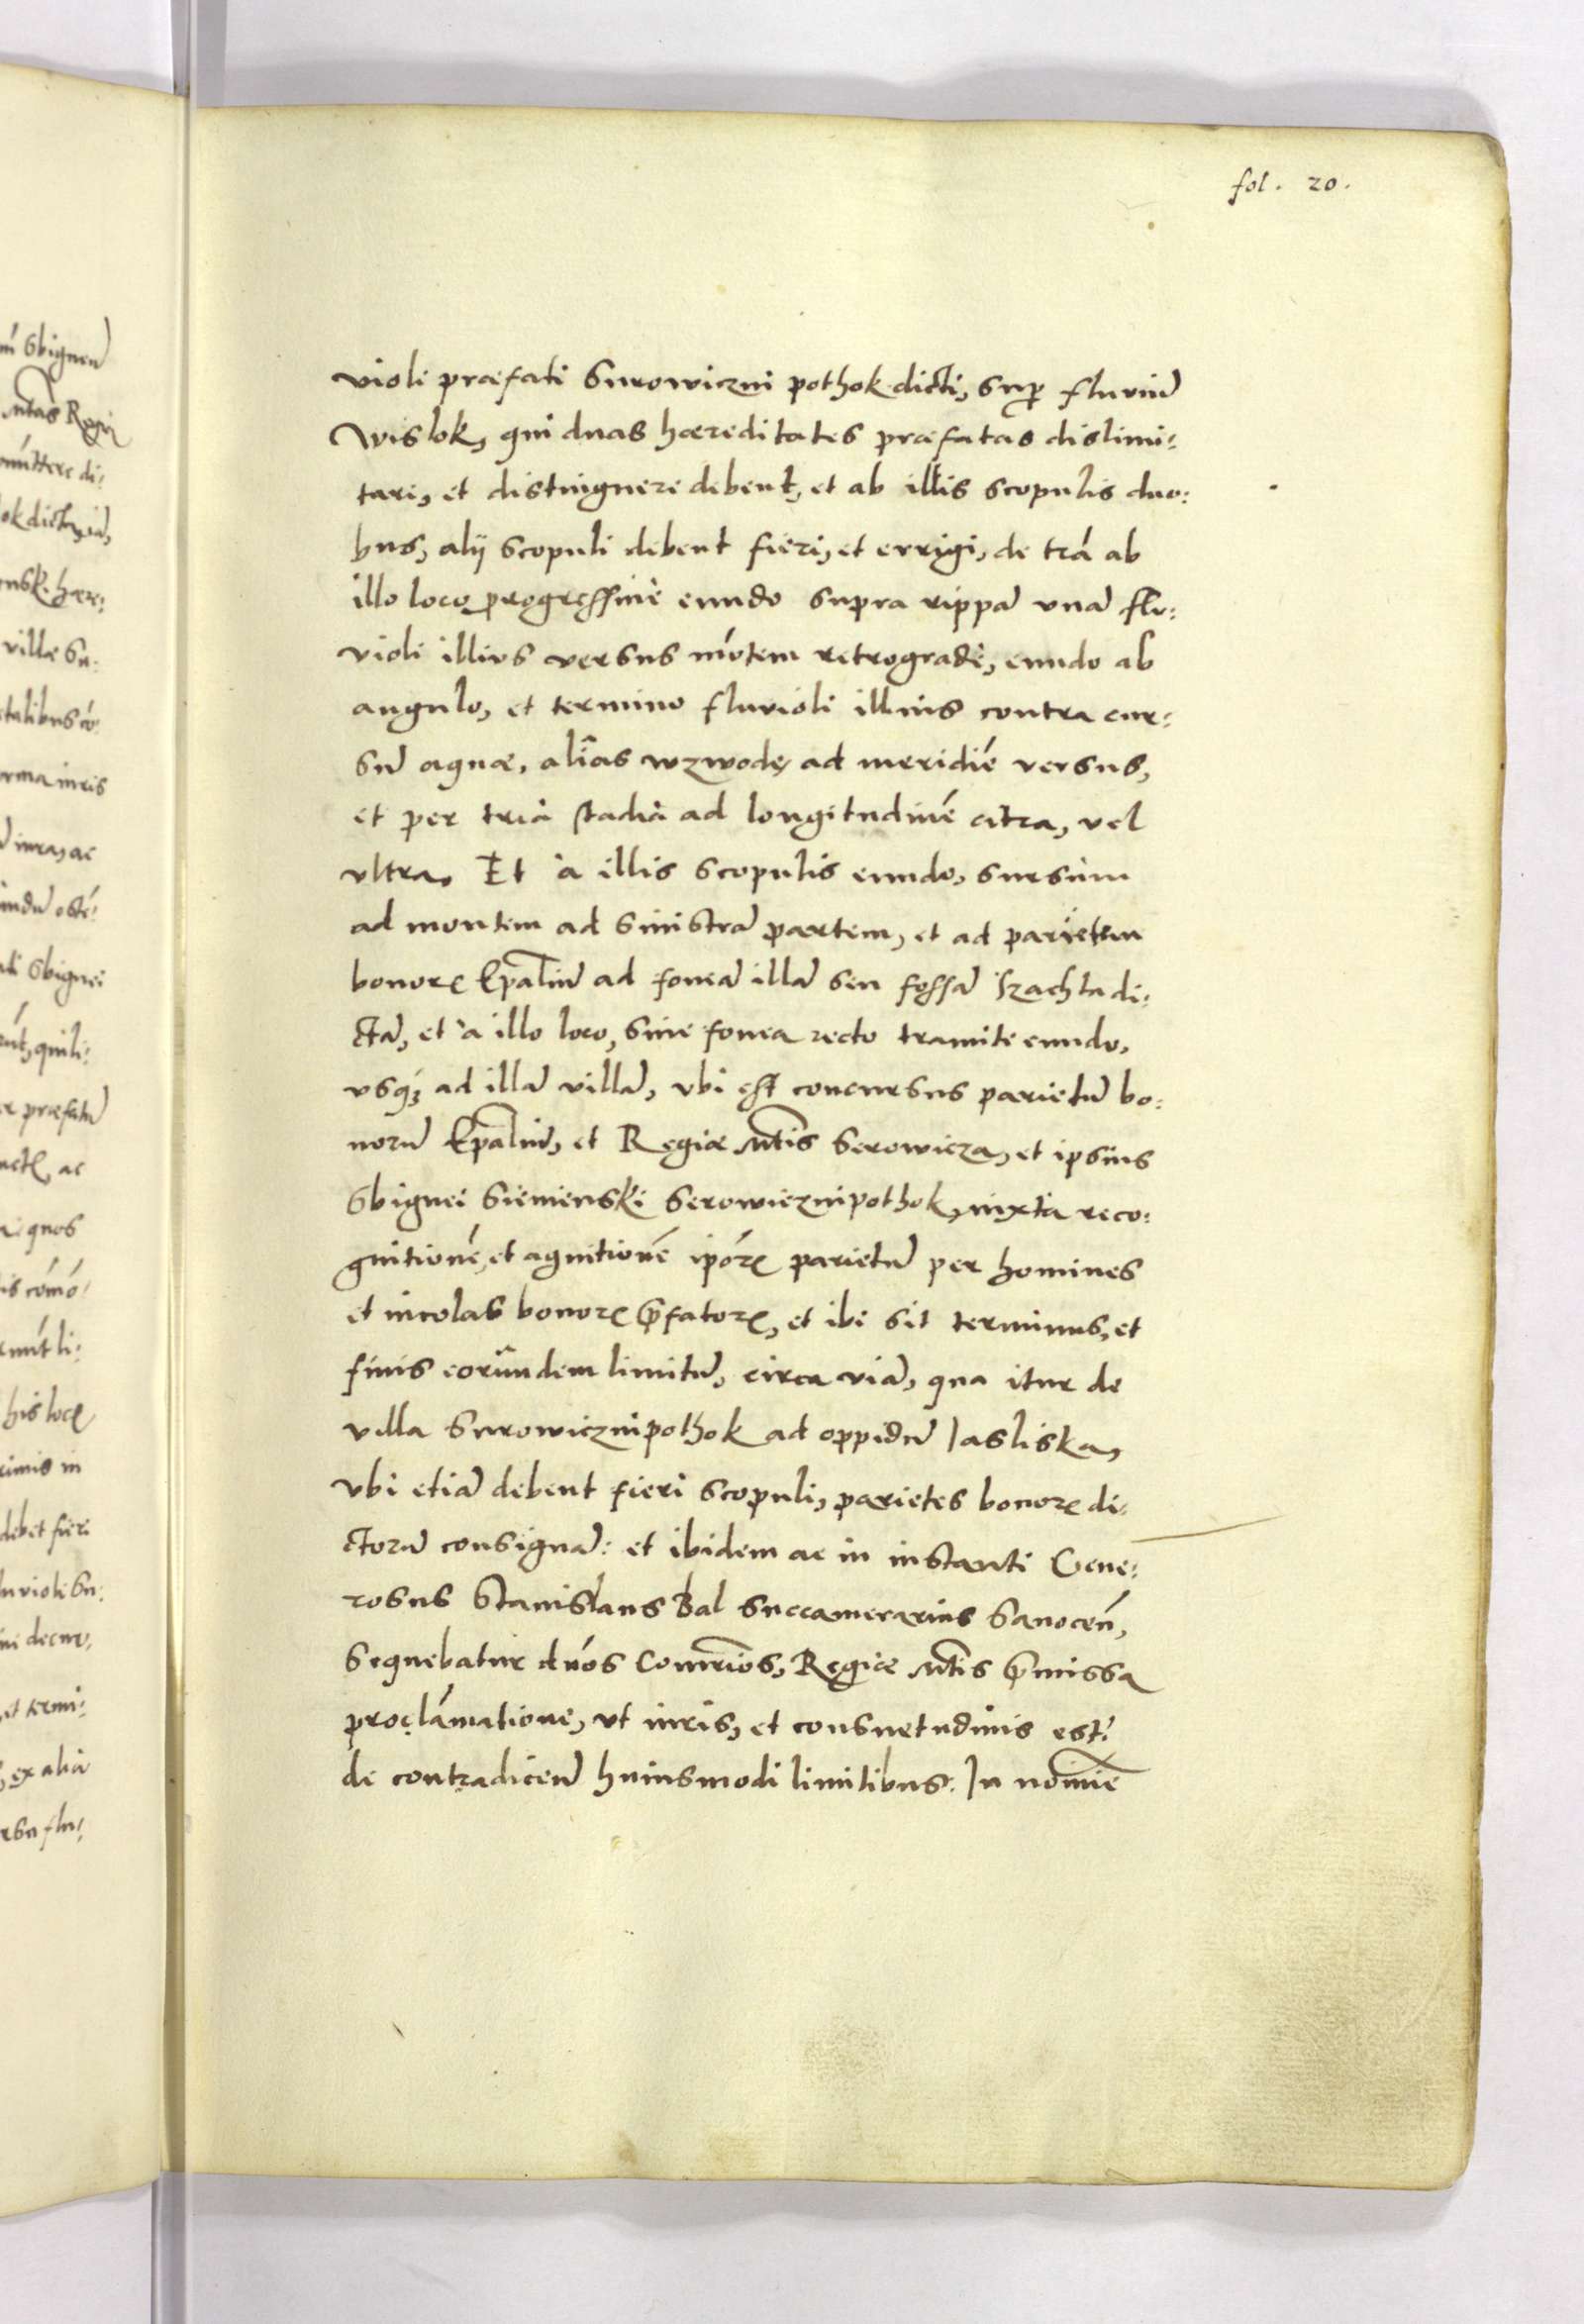 fol. 20.
violi præfati Surowiczni pothok dicti, sup fluviū
Wislok, qui duas hæreditates præfatas dislimi:
tari, et distinguere debent, et ab illis scopulis duo:
bus, alij scopuli debent fieri, et errigi, de trā ab
illo loco progressiuè eundo supra rippā vnā flu:
violi illius versus mōtem retrogradè, eundo ab
angulo, et termino fluvioli illius contra cur:
sū aquæ, aliās wzwodę ad meridiē versus,
et per tria stadia ad longitudinē citra, vel
vltra, Et à illis scopulis eundo, sursum
ad montem ad sinistrā partem, et ad parietem
bonorꝝ Epaliū ad foueā illā seu fossā Szachta di:
ctā, et à illo loco, siue fouea recto tramite eundo,
vsqꝫ ad illā villā, vbi est concursus parietū bo:
norū Epaliū, et Regiæ Mtis Serowicza, et ipsius
Sbignei Sienienski Serowicznipothok, iuxta reco:
gnitionē, et agnitionē ipōrꝝ parietū per homines
et incolas bonorꝝ p̄fatorꝝ, et ibi sit terminus, et
finis eorundem limitū, circa viā, qua itur de
villa Surowicznipothok ad oppidū Jasliska,
vbi etiā debent fieri scopuli, parietes bonorꝝ di:
ctorū consignā: et ibidem ac in instanti Gene:
rosus Stanislaus Bal Succamerarius Sanoceñ,
sequebatur dnos Comrios, Regiæ Mtis p̄missa
proclamatione, vt iuris, et consuetudinis est:
de contradicenď huiusmodi limitibus. In noīmie